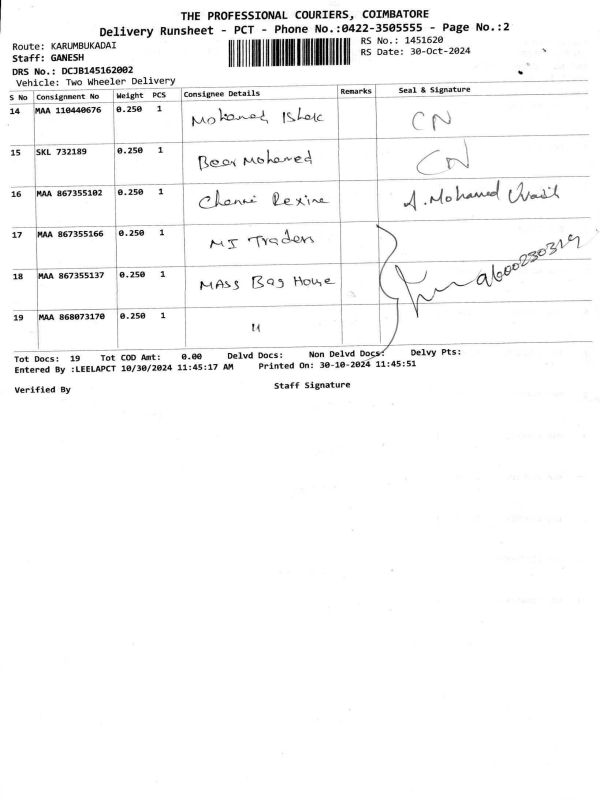 THE PROFESSIONAL COURIERS, COIMBATORE
Delivery Runsheet - PCT - Phone No.:0422-3505555 - Page No.:2
Route: KARUMBUKADAI
RS No.: 1451620
Staff: GANESH
RS Date: 30-Oct-2024
DRS No.: DCJB145162002
Vehicle: Two Wheeler Delivery
S No Consignment No Weight PCS Consignee Details Remarks Seal & Signature
14 MAA 110440676 0.250 1 Mohamed Ishak CN
15 SKL 732189 0.250 1 Beer Mohamed CN
16 MAA 867355102 0.250 1 Chennai Rexine A. Mohamed
17 MAA 867355166 0.250 1 MI Traders
18 MAA 867355137 0.250 1 MASS Bag House
19 MAA 868073170 0.250 1 "
Tot Docs: 19 Tot COD Amt: 0.00 Delvd Docs: Non Delvd Docs: Delvy Pts:
Entered By :LEELAPCT 10/30/2024 11:45:17 AM Printed On: 30-10-2024 11:45:51
Verified By Staff Signature